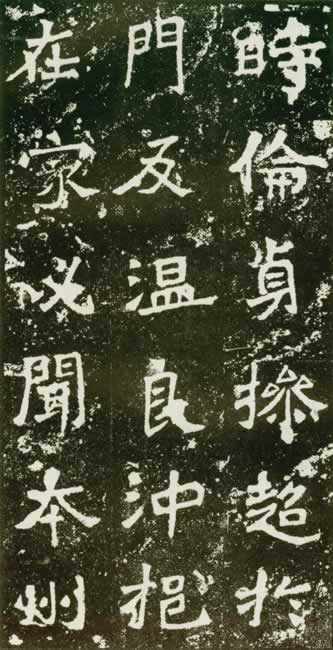 時倫貞操超於
門及温良沖挹
在家必聞本州